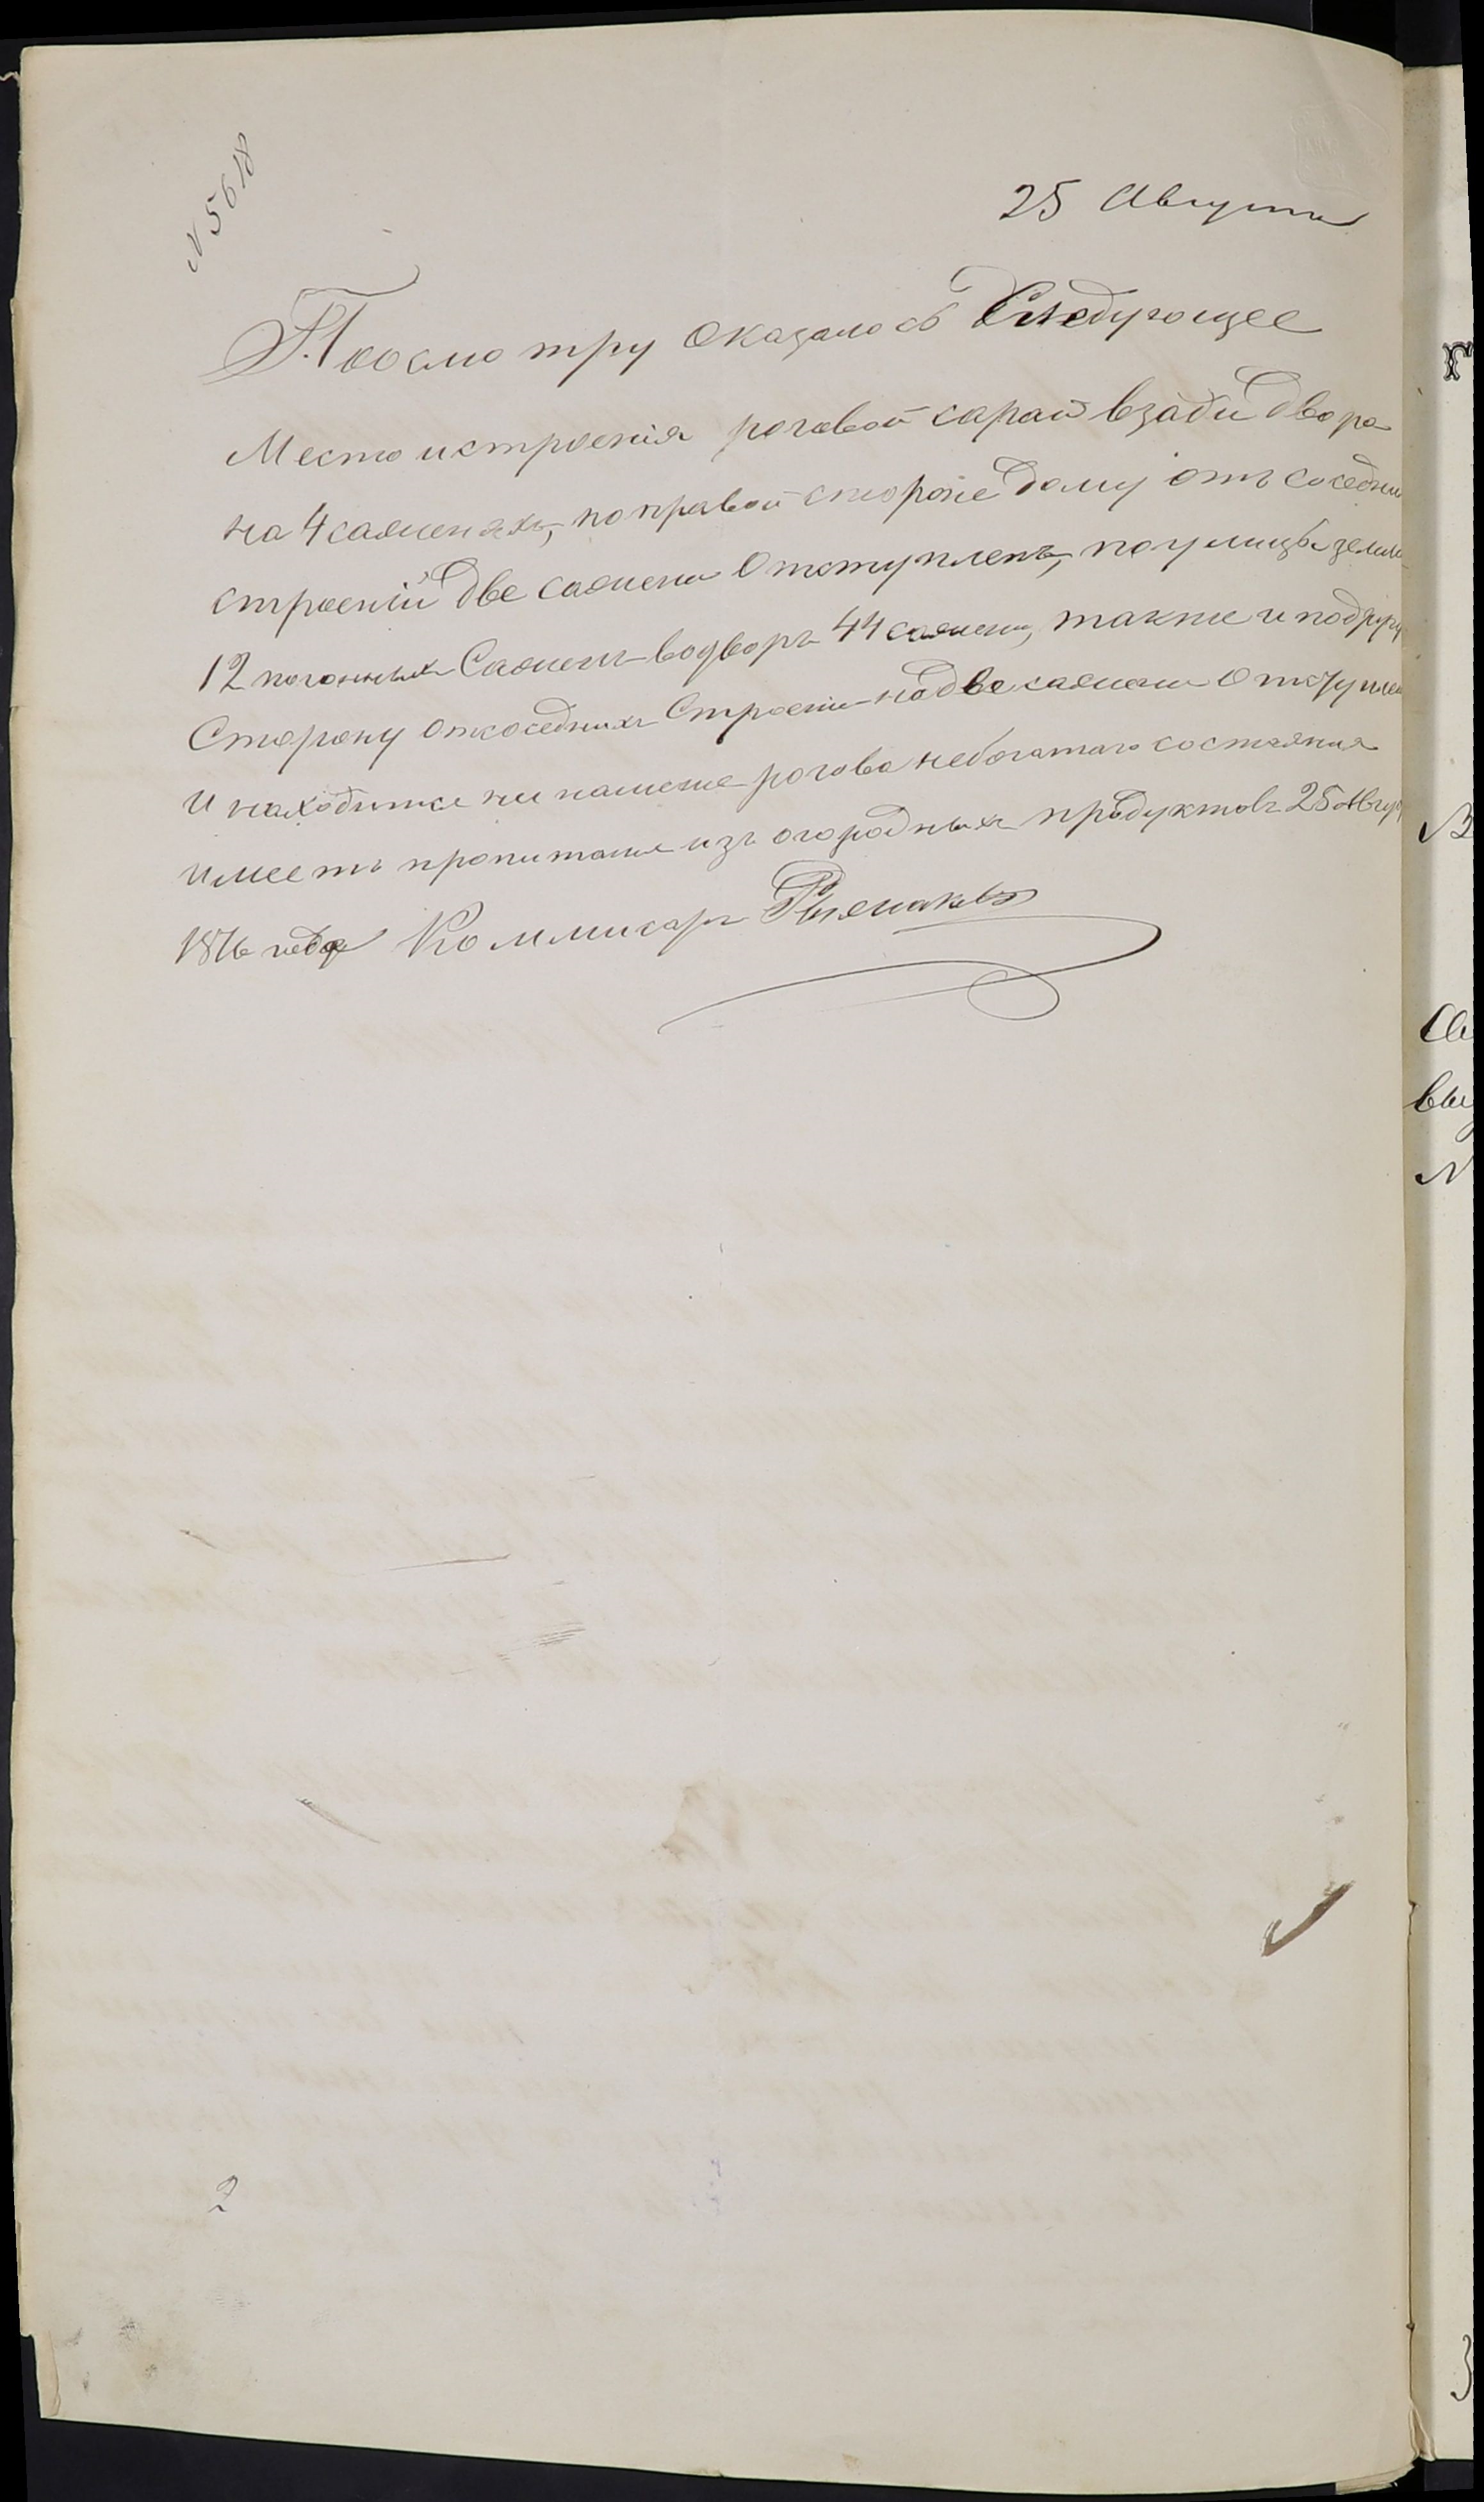 N 5618
25 Августа
Поосмотру оказалось Следующее
Место истроения роговой сарай взади двора
на 4 саженях, поправой стороне дому отъ соседни
строений две сажени Отступлень, поулицъ земли
12 погонныхъ Саженъ водворъ 44 сажени, также и подругу
Сторону откоседнихъ Строени надве сажени Отступлен
и находится рогова небогатаго состояния
имееть пропитание изъ огородныхъ продуктовъ 25 Авгус
1876 года Коммисаръ
2